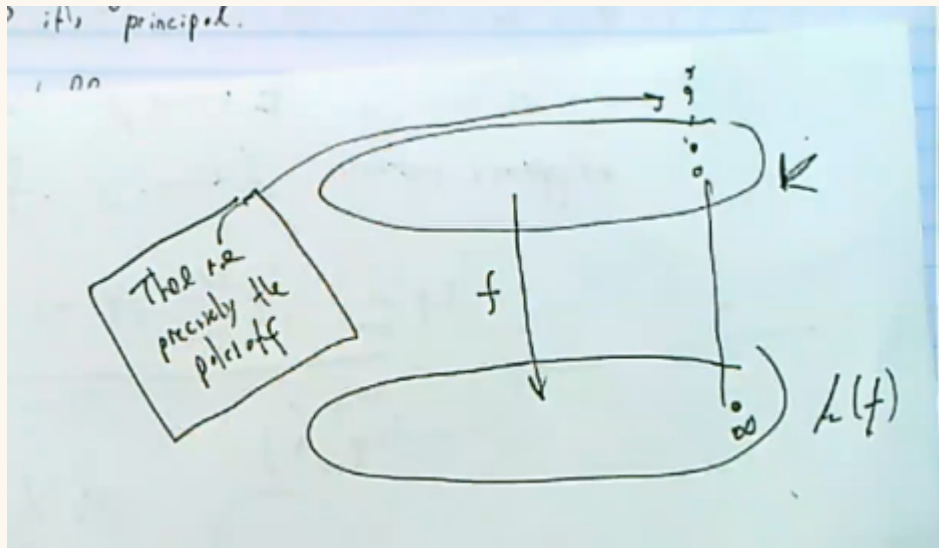 it is principal.
K
These are
precisely the
poles of f
f
k(f)
∞